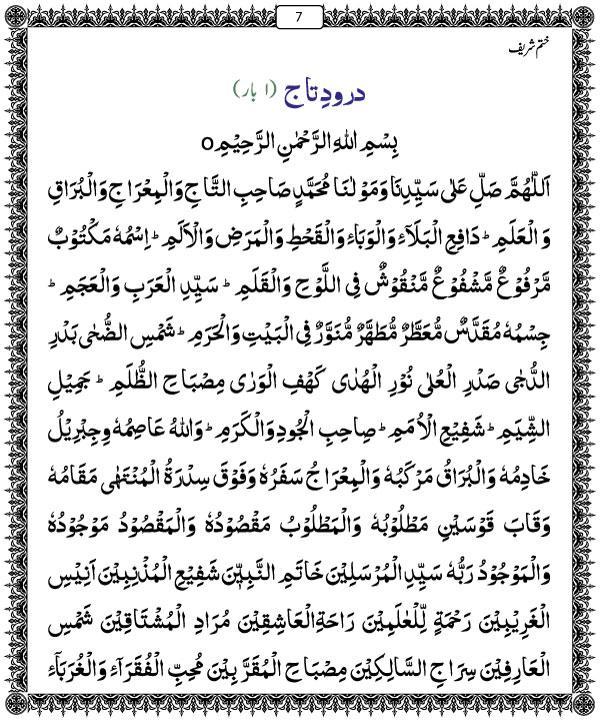 7
ختم شریف
درودِ تاج (۱ بار)
بِسْمِ اللهِ الرَّحْمٰنِ الرَّحِیْمِo
اَللّٰهُمَّ صَلِّ عَلٰی سَیِّدِنَا وَمَوْلٰنَا مُحَمَّدٍ صَاحِبِ التَّاجِ وَالْمِعْرَاجِ وَالْبُرَاقِ
وَالْعَلَمِ ؕ دَافِعِ الْبَلَآءِ وَالْوَبَآءِ وَالْقَحْطِ وَالْمَرَضِ وَالْاَلَمِ ؕ اِسْمُهٗ مَكْتُوْبٌ
مَّرْفُوْعٌ مَّشْفُوْعٌ مَّنْقُوْشٌ فِی اللَّوْحِ وَالْقَلَمِ ؕ سَیِّدِ الْعَرَبِ وَالْعَجَمِ ؕ
جِسْمُهٗ مُقَدَّسٌ مُّعَطَّرٌ مُّطَهَّرٌ مُّنَوَّرٌ فِی الْبَیْتِ وَالْحَرَمِ ؕ شَمْسِ الضُّحٰی بَدْرِ
الدُّجٰی صَدْرِ الْعُلٰی نُوْرِ الْهُدٰی كَهْفِ الْوَرٰی مِصْبَاحِ الظُّلَمِ ؕ جَمِیْلِ
الشِّیَمِ ؕ شَفِیْعِ الْاُمَمِ ؕ صَاحِبِ الْجُوْدِ وَالْكَرَمِ ؕ وَاللهُ عَاصِمُهٗ وَجِبْرِیْلُ
خَادِمُهٗ وَالْبُرَاقُ مَرْكَبُهٗ وَالْمِعْرَاجُ سَفَرُهٗ وَفَوْقَ سِدْرَةُ الْمُنْتَهٰی مَقَامُهٗ
وَقَابَ قَوْسَیْنِ مَطْلُوْبُهٗ وَالْمَطْلُوْبُ مَقْصُوْدُهٗ وَالْمَقْصُوْدُ مَوْجُوْدُهٗ
وَالْمَوْجُوْدُ رَبُّهٗ سَیِّدِ الْمُرْسَلِیْنَ خَاتَمِ النَّبِیّٖنَ شَفِیْعِ الْمُذْنِبِیْنَ اَنِیْسِ
الْغَرِیْبِیْنَ رَحْمَةٍ لِّلْعٰلَمِیْنَ رَاحَةِ الْعَاشِقِیْنَ مُرَادِ الْمُشْتَاقِیْنَ شَمْسِ
الْعَارِفِیْنَ سِرَاجِ السَّالِكِیْنَ مِصْبَاحِ الْمُقَرَّبِیْنَ مُحِبِّ الْفُقَرَآءِ وَالْغُرَبَآءِ